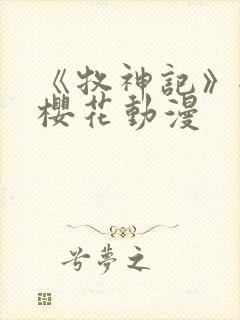 《牧神記》
櫻花動漫
兮夢之